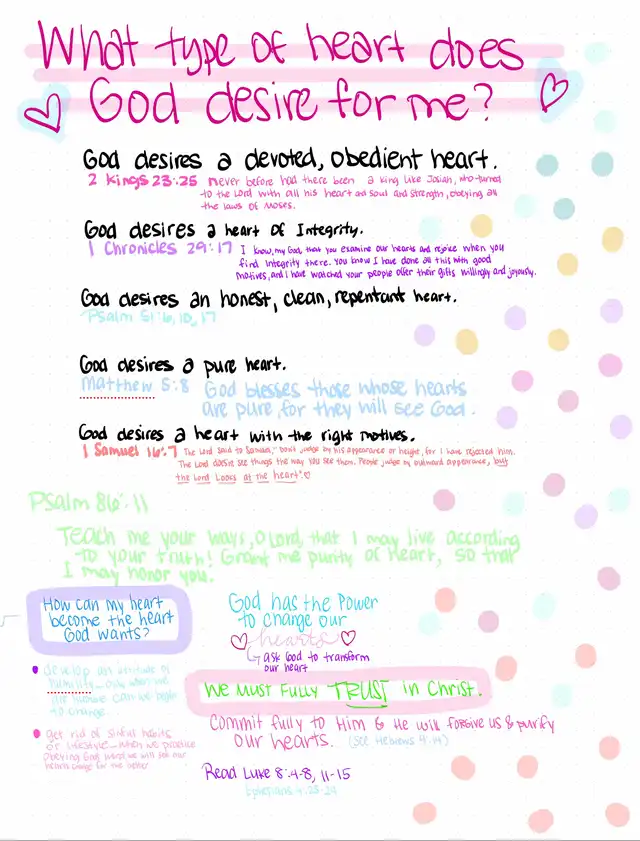 What type of heart does
God desire for me?
God desires a devoted, obedient heart.
2 Kings 23:25 never before had there been a king like Josiah, who turned
to the Lord with all his heart and soul and strength, obeying all
the laws of Moses.
God desires a heart of Integrity.
1 Chronicles 29:17 I know, my God, that you examine our hearts and rejoice when you
find integrity there. You know I have done all this with good
motives, and I have watched your people offer their gifts willingly and joyously.
God desires an honest, clean, repentant heart.
Psalm 51:6, 10, 17
God desires a pure heart.
Matthew 5:8 God blesses those whose hearts
are pure, for they will see God.
God desires a heart with the right motives.
1 Samuel 16:7 The Lord said to Samuel, "Don't judge by his appearance or height, for I have rejected him.
The Lord doesn't see things the way you see them. People judge by outward appearance, but
the Lord Looks at the heart."
Psalm 86:11
Teach me your ways, O Lord, that I may live according
to your truth! Grant me purity of heart, so that
I may honor you.
How can my heart
become the heart
God wants?
develop an attitude of
humility - only when we
are humble can we begin
to change...
get rid of sinful habits
or lifestyle - when we
obeying God word we will
hearts change for the better
God has the Power
to change our
hearts
ask God to transform
our heart
We Must Fully TRUST in Christ.
Commit fully to Him & He will forgive us & purify
our hearts. (see Hebrews 4:14)
Read Luke 8:4-8, 11-15
Ephesians 4:23-24